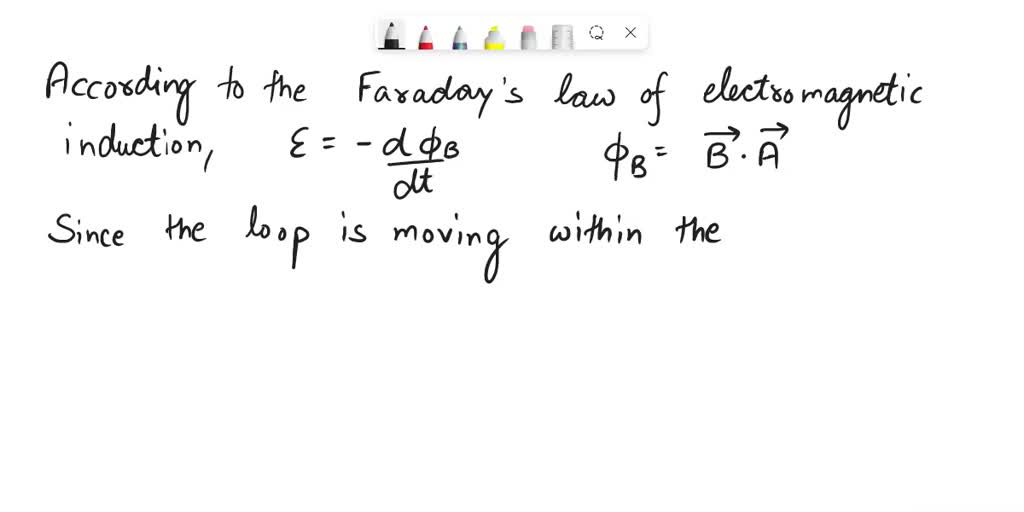 According to the Faraday's law of electromagnetic
induction, ε = - dϕB/dt ϕB = B⃗ . A⃗
Since the loop is moving within the